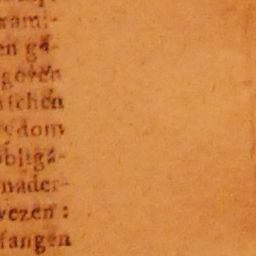 rami-
en ga-
goven
schen
dom
obliga-
nader-
vezen :
fangen